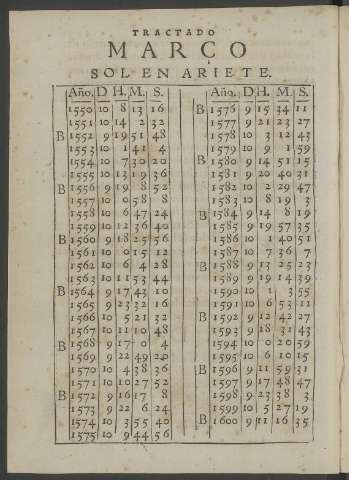 TRACTADO
MARÇO
SOL EN ARIETE.
Año. D H. M. S. Año. D. H. M. S.
1550 10 8 13 16 B 1576 9 15 34 11
1551 10 14 2 32 1577 9 21 23 27
B 1552 9 19 51 48 1578 10 3 12 43
1553 10 1 41 4 1579 10 9 1 59
1554 10 7 30 20 B 1580 9 14 51 15
1555 10 13 19 36 1581 9 20 40 31
B 1556 9 19 8 52 1582 10 2 29 47
1557 10 0 58 8 1583 10 8 19 3
1558 10 6 47 24 B 1584 9 14 8 19
1559 10 12 36 40 1585 9 19 57 35
B 1560 9 18 25 56 1586 10 1 40 51
1561 10 0 15 12 1587 10 7 36 7
1562 10 6 4 28 B 1588 9 13 25 23
1563 10 11 53 44 1589 9 19 14 39
B 1564 9 17 43 10 1590 10 1 3 55
1565 9 23 32 16 1591 10 6 53 11
1566 10 5 21 32 B 1592 9 12 42 27
1567 10 11 10 48 1593 9 18 31 43
B 1568 9 17 0 4 1594 10 0 20 59
1569 9 22 49 20 1595 10 6 10 15
1570 10 4 38 36 B 1596 9 11 59 31
1571 10 10 27 52 1597 9 17 48 47
B 1572 9 16 17 8 1598 9 23 38 3
1573 9 22 6 24 1599 10 5 27 19
1574 10 3 55 40 B 1600 9 11 16 35
1575 10 9 44 56